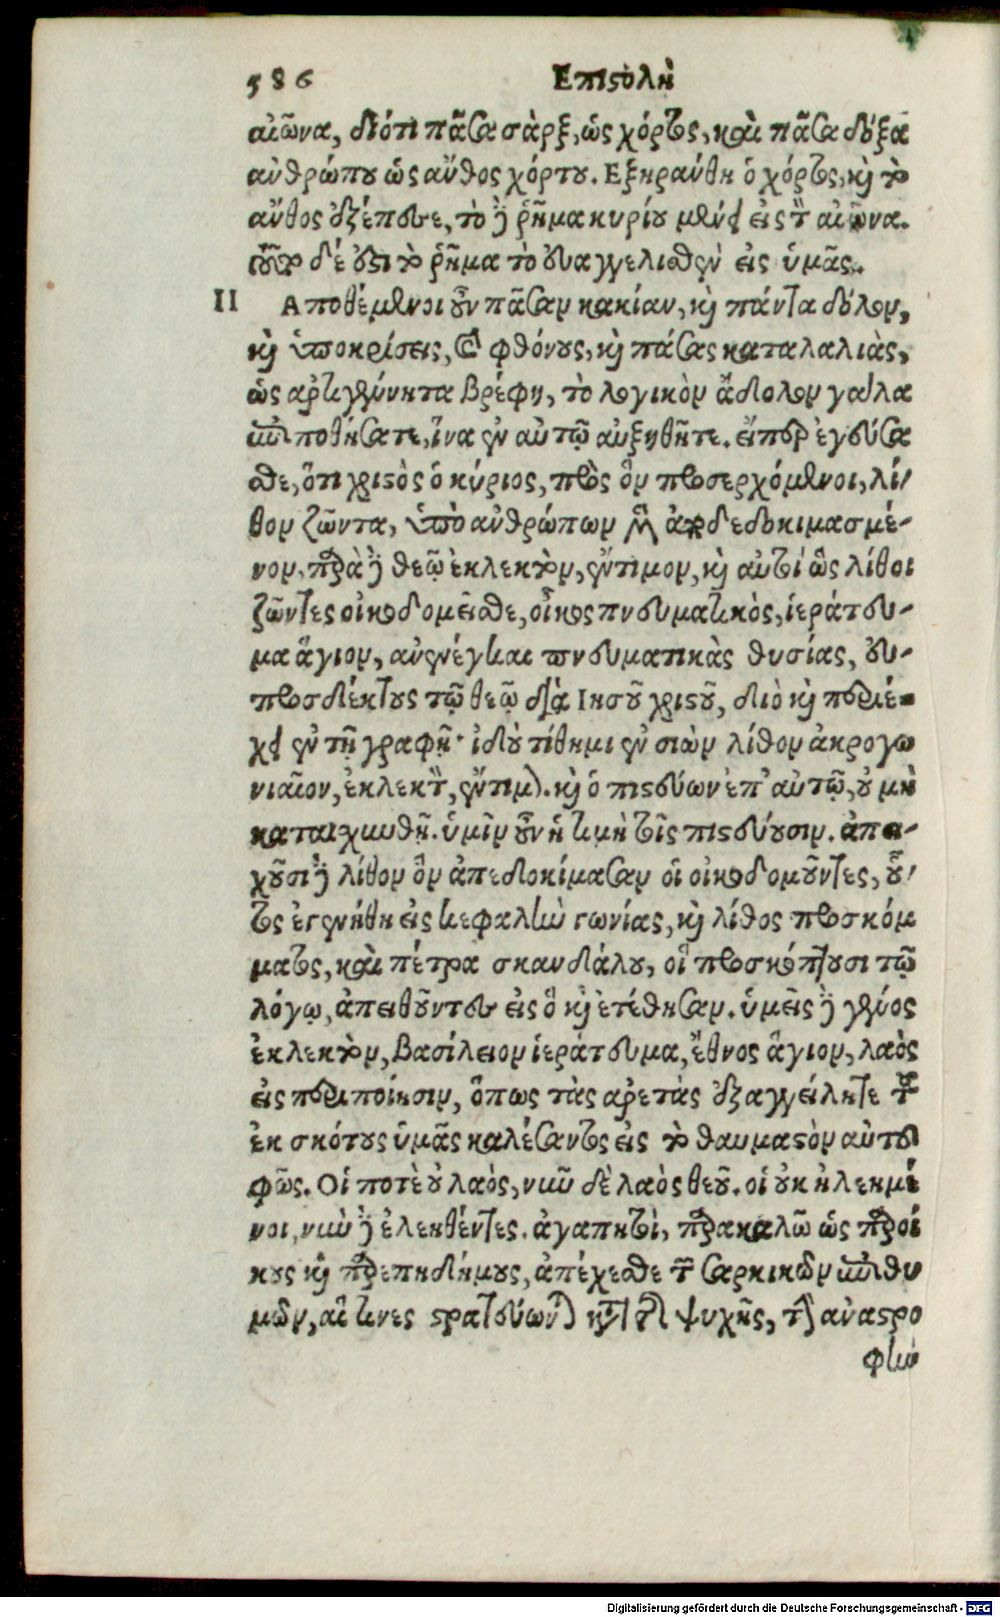 586 Επιστολὴ
αἰῶνα, διότι πᾶσα σὰρξ, ὡς χόρτος, καὶ πᾶσα δόξα
ἀνθρώπου ὡς ἄνθος χόρτου. Εξηράνθη ὁ χόρτος, καὶ τὸ
ἄνθος ἐξέπεσε, τὸ δὲ ῥῆμα κυρίου μένει εἰς τὸν αἰῶνα.
τοῦτο δέ ἐστι τὸ ῥῆμα τὸ εὐαγγελισθὲν εἰς ὑμᾶς.
II Αποθέμενοι οὖν πᾶσαν κακίαν, καὶ πάντα δόλον,
καὶ ὑποκρίσεις, καὶ φθόνους, καὶ πάσας καταλαλιὰς,
ὡς ἀρτιγέννητα βρέφη, τὸ λογικὸν ἄδολον γάλα
ἐπιποθήσατε, ἵνα ἐν αὐτῷ αὐξηθῆτε. εἴπερ ἐγεύσα
σθε, ὅτι χριστὸς ὁ κύριος, πρὸς ὃν προσερχόμενοι, λί/
θον ζῶντα, ὑπὸ ἀνθρώπων μὲν ἀποδεδοκιμασμέ-
νον, παρὰ δὲ θεῷ ἐκλεκτὸν, ἔντιμον, καὶ αὐτοί ὡς λίθοι
ζῶντες οἰκοδομεῖσθε, οἶκος πνευματικὸς, ἱεράτευ-
μα ἅγιον, ἀνενέγκαι πνευματικὰς θυσίας, εὐ-
προσδέκτους τῷ θεῷ διὰ Ιησοῦ χριστοῦ, διὸ καὶ περιέ-
χει ἐν τῇ γραφῇ· ἰδοὺ τίθημι ἐν σιὼν λίθον ἀκρογω
νιαῖον, ἐκλεκτὸν, ἔντιμον. καὶ ὁ πιστεύων ἐπ' αὐτῷ, οὐ μὴ
καταισχυνθῇ. ὑμῖν οὖν ἡ τιμὴ τοῖς πιστεύουσιν. ἀπει-
θοῦσι δὲ λίθον ὃν ἀπεδοκίμασαν οἱ οἰκοδομοῦντες, οὗ/
τος ἐγενήθη εἰς κεφαλὴν γωνίας, καὶ λίθος προσκόμ
ματος, καὶ πέτρα σκανδάλου, οἳ προσκόπτουσι τῷ
λόγῳ, ἀπειθοῦντες εἰς ὃ καὶ ἐτέθησαν. ὑμεῖς δὲ γένος
ἐκλεκτὸν, βασίλειον ἱεράτευμα, ἔθνος ἅγιον, λαὸς
εἰς περιποίησιν, ὅπως τὰς ἀρετὰς ἐξαγγείλητε τοῦ
ἐκ σκότους ὑμᾶς καλέσαντος εἰς τὸ θαυμαστὸν αὐτοῦ
φῶς. Οἱ ποτὲ οὐ λαὸς, νῦν δὲ λαὸς θεοῦ. οἱ οὐκ ἠλεημέ
νοι, νῦν δὲ ἐλεηθέντες. ἀγαπητοὶ, παρακαλῶ ὡς παροί
κους καὶ παρεπιδήμους, ἀπέχεσθε τῶν σαρκικῶν ἐπιθυ
μιῶν, αἵτινες στρατεύονται κατὰ τῆς ψυχῆς, τὴν ἀναστρο
φὴν